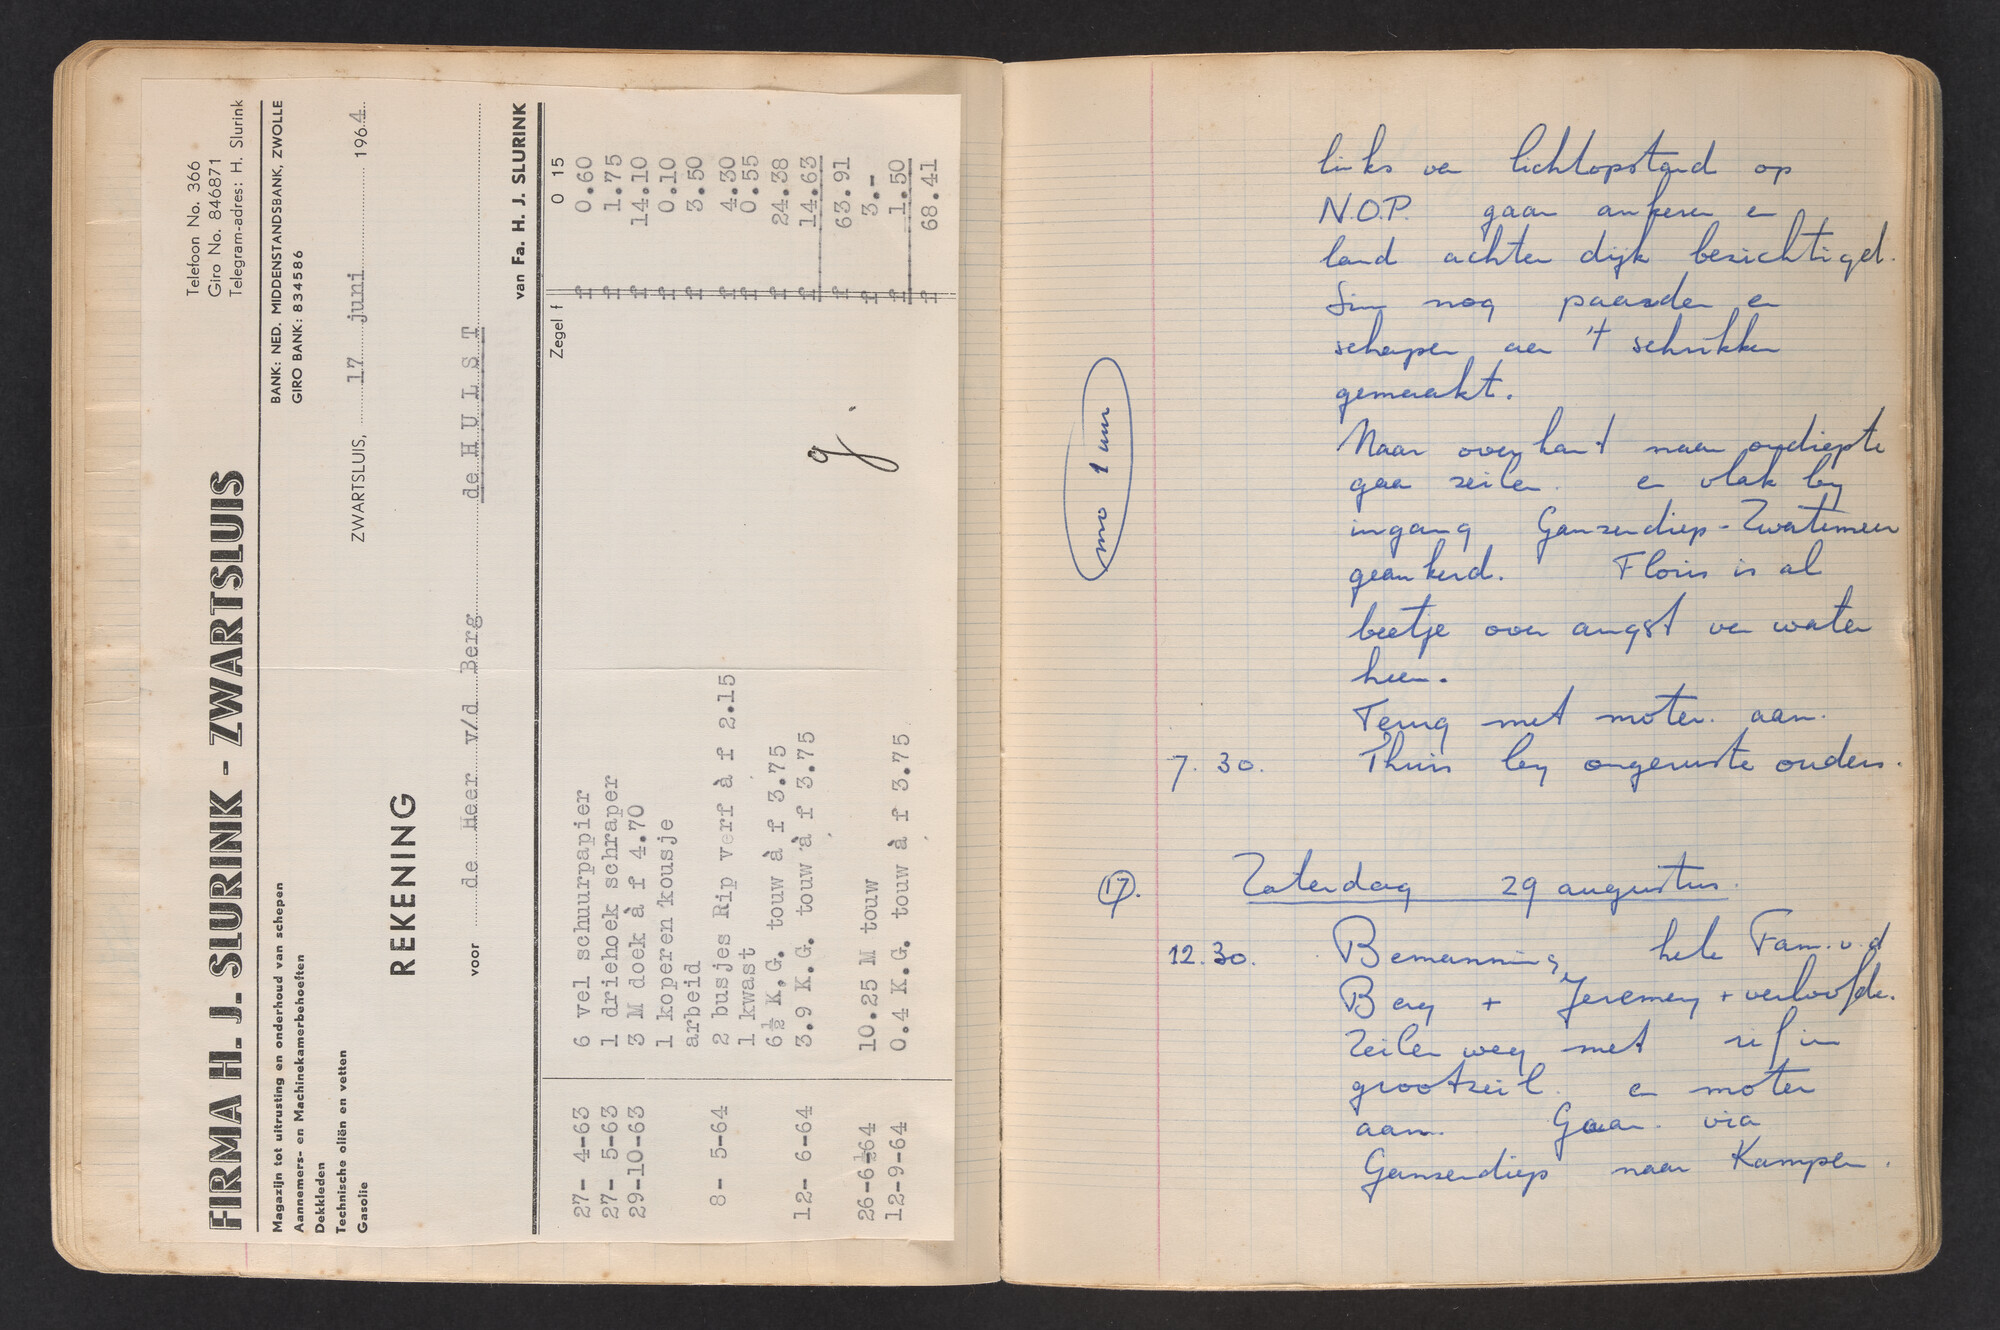 FIRMA H. J. SLURINK - ZWARTSLUIS
Magazijn tot uitrusting en onderhoud van schepen
Aannemers- en Machinekamerbehoeften
Dekkleden
Technische oliën en vetten
Gasolie
Telefoon No. 366
Giro No. 846871
Telegram-adres: H. Slurink
BANK: NED. MIDDENSTANDSBANK, ZWOLLE
GIRO BANK: 834586
ZWARTSLUIS, 17 juni 1964
REKENING
voor de Heer v/d Berg de HULST
van Fa. H. J. SLURINK
Zegel f 0 15
27- 4-63 6 vel schuurpapier f 0.60
27- 5-63 1 driehoek schraper f 1.75
29-10-63 3 M doek à f 4.70 f 14.10
1 koperen kousje f 0.10
arbeid f 3.50
8- 5-64 2 busjes Rip verf à f 2.15 f 4.30
1 kwast f 0.55
6½ K.G. touw à f 3.75 f 24.38
12- 6-64 3.9 K.G. touw à f 3.75 f 14.63
f 63.91
26-6-64 10.25 M touw f 3.-
12-9-64 0.4 K.G. touw à f 3.75 f 1.50
f 68.41
links van lichtopstand op
N.O.P. gaan ankeren en
land achter dijk bezichtigd.
nog paarden en
schapen aan 't schrikken
gemaakt.
Naar overkant naar ondiepte
gaan zeilen en vlak by
ingang Ganzendiep - Zwartemeer
geankerd. Floris is al
beetje over angst van water
heen.
Terug met moter aan.
7.30. Thuis by ongeruste ouders.
mo 1 uur
17. Zaterdag 29 augustus.
12.30. Bemanning, hele Fam. v.d
Berg + Jeremy + verloofde.
Zeilen weg met rif in
grootzeil en moter
aan. Gaan via
Ganzendiep naar Kampen.